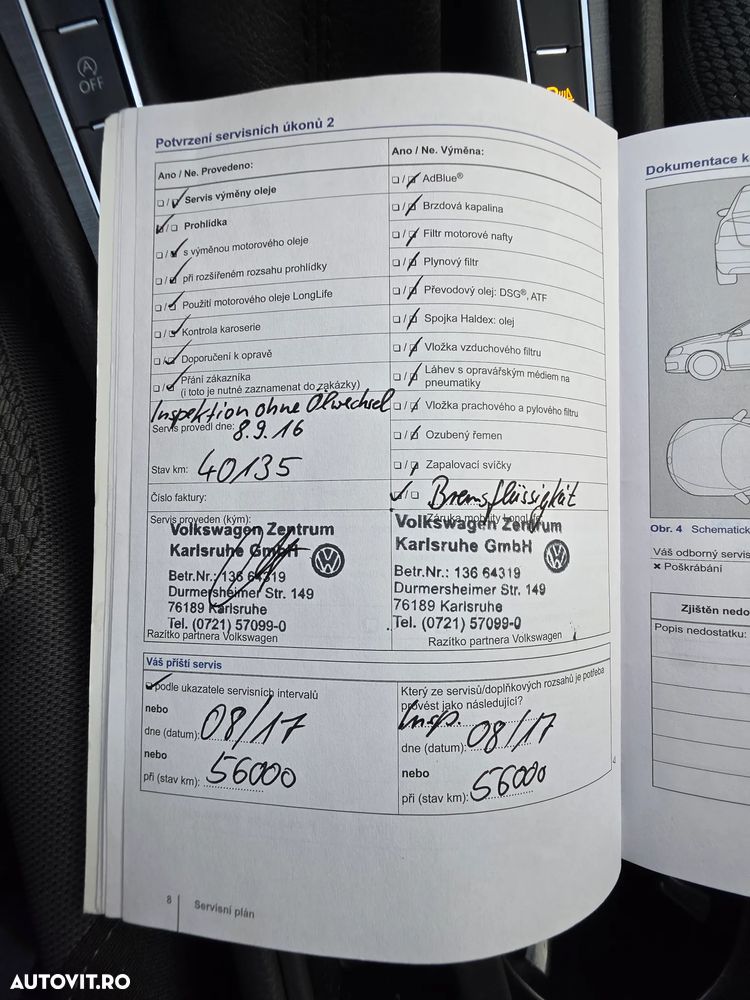 A
OFF
Potvrzení servisních úkonů 2
Ano / Ne. Provedeno:
Servis výměny oleje
Prohlídka
s výměnou motorového oleje
při rozšířeném rozsahu prohlídky
Použití motorového oleje LongLife
Kontrola karoserie
Doporučení k opravě
Přání zákazníka
(i toto je nutné zaznamenat do zakázky)
Inspektion ohne Ölwechsel
Servis provedl dne: 8.9.16
Stav km: 40135
Číslo faktury:
Servis proveden (kým):
Volkswagen Zentrum
Karlsruhe GmbH
Betr.Nr.: 136 64319
Durmersheimer Str. 149
76189 Karlsruhe
Tel. (0721) 57099-0
Razítko partnera Volkswagen
Ano / Ne. Výměna:
AdBlue®
Brzdová kapalina
Filtr motorové nafty
Plynový filtr
Převodový olej: DSG®, ATF
Spojka Haldex: olej
Vložka vzduchového filtru
Láhev s opravářským médiem na
pneumatiky
Vložka prachového a pylového filtru
Ozubený řemen
Zapalovací svíčky
Bremsflüssigkeit
Záruka mobility LongLife
Volkswagen Zentrum
Karlsruhe GmbH
Betr.Nr.: 136 64319
Durmersheimer Str. 149
76189 Karlsruhe
Tel. (0721) 57099-0
Razítko partnera Volkswagen
Váš příští servis
podle ukazatele servisních intervalů
nebo
dne (datum): 08/17
nebo
při (stav km): 56000
Který ze servisů/doplňkových rozsahů je potřeba
provést jako následující?
Insp.
dne (datum): 08/17
nebo
při (stav km): 56000
8 Servisní plán
Dokumentace k
Obr. 4 Schematick
Váš odborný servis
× Poškrábání
Zjištěn nedo
Popis nedostatku:
AUTOVIT.RO